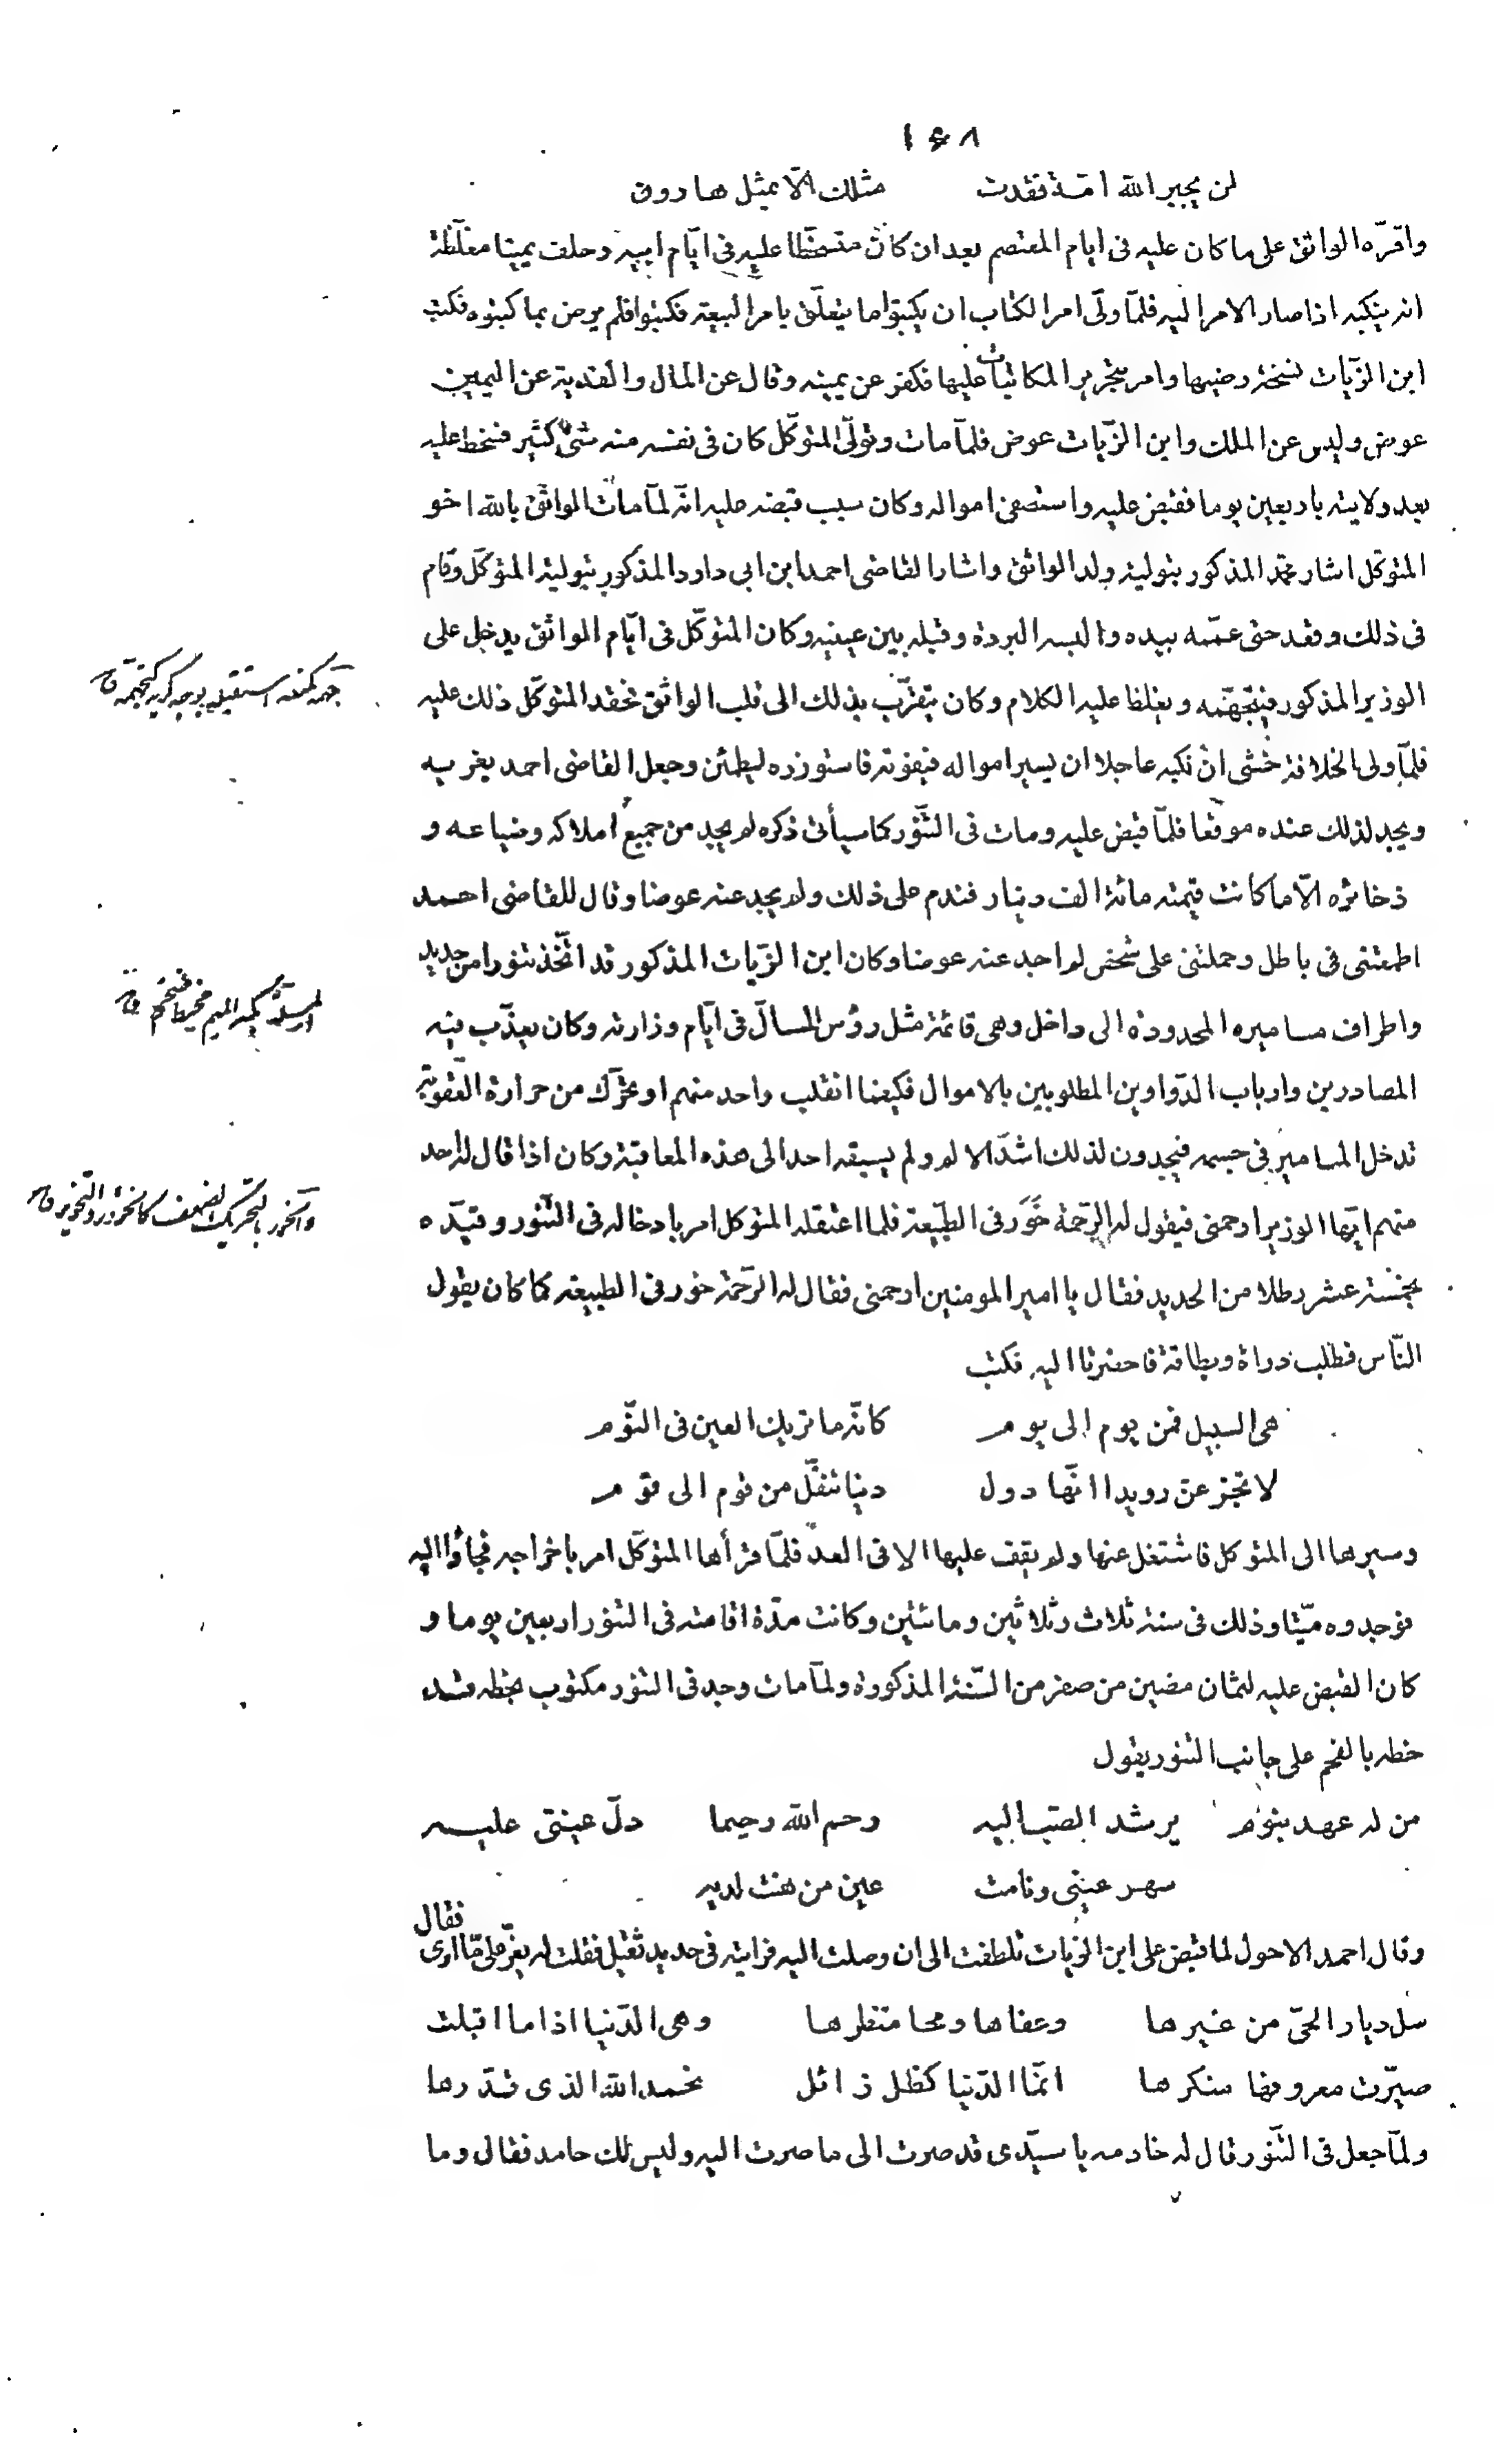 ١٤٨
لن يجبر الله امة فقدت مثلك الا بمثل هارون
واقره الواثق على ما كان عليه فى ايام المعتصم بعد ان كان متسخطا عليه فى ايام ابيه وحلف يمينا مغلظة
انه ينكبه اذا صار الامر اليه فلما ولى امر الكتاب ان يكتبوا ما يتعلق بامر البيعة فكتبوا فلم يرض بما كتبوه فكتب
ابن الزيات نسخة رضيها وامر بتحرير المكاتبات عليها فكفر عن يمينه وقال عن المال والفدية عن اليمين
عوض وليس عن الملك وابن الزيات عوض فلما مات وتولى المتوكل كان فى نفسه منه شئ كثير فسخط عليه
بعد ولايته باربعين يوما فقبض عليه واستصفى امواله وكان سبب قبضه عليه انه لما مات الواثق بالله اخو
المتوكل اشار محمد المذكور بتولية ولد الواثق واشار القاضى احمد ابن ابى داود المذكور بتولية المتوكل وقام
فى ذلك وقعد حتى عممه بيده والبسه البردة وقبله بين عينيه وكان المتوكل فى ايام الواثق يدخل على
الوزير المذكور فيتجهمه ويغلظ عليه الكلام وكان يتقرب بذلك الى قلب الواثق فحقد المتوكل ذلك عليه
فلما ولى الخلافة خشى ان نكبه عاجلا ان يسير امواله فيفوته فاستوزره ليطمئن وجعل القاضى احمد يغريه
ويجد لذلك عنده موقعا فلما قبض عليه ومات فى التنور كما سيأتى ذكره لم يجد من جميع املاكه وضياعه و
ذخائره الا ما كانت قيمته مائة الف دينار فندم على ذلك ولم يجد عنه عوضا وقال للقاضى احمد
اطمعتنى فى باطل وحملتنى على شخص لم اجد عنه عوضا وكان ابن الزيات المذكور قد اتخذ تنورا من حديد
واطراف مساميره المحدودة الى داخل وهى قائمة مثل رؤس المسال فى ايام وزارته وكان يعذب فيه
المصادرين وارباب الدواوين المطلوبين بالاموال فكيفما انقلب واحد منهم او تحرك من حرارة العقوبة
تدخل المسامير فى جسمه فيجدون لذلك اشد الالم ولم يسبقه احد الى هذه المعاقبة وكان اذا قال له احد
منهم ايها الوزير ارحمنى فيقول له الرحمة خَوَر فى الطبيعة فلما اعتقله المتوكل امر بادخاله فى التنور وقيده
بخمسة عشر رطلا من الحديد فقال يا امير المومنين ارحمنى فقال له الرحمة خور فى الطبيعة كما كان يقول
الناس فطلب دواة وبطاقة فاحضرتا اليه فكتب
هى السبيل فمن يوم الى يوم كانه ما تريك العين فى النوم
لا تجزعن رويدا انها دول دنيا تنقل من قوم الى قوم
وسيرها الى المتوكل فاشتغل عنها ولم يقف عليها الا فى الغد فلما قرأها المتوكل امر باخراجه فجاؤا اليه
فوجدوه ميتا وذلك فى سنة ثلاث وثلاثين ومائتين وكانت مدة اقامته فى التنور اربعين يوما و
كان القبض عليه لثمان مضين من صفر من السنة المذكورة ولما مات وجد فى التنور مكتوب بخطه قد
خطه بالفحم على جانب التنور يقول
من له عهد بنوم يرشد الصب اليه رحم الله رحيما دل عينى عليه
سهر عينى ونامت عين من هنت لديه
وقال احمد الاحول لما قبض على ابن الزيات تلطفت الى ان وصلت اليه فرايته فى حديد ثقيل فقلت له يعز على ما ارى فقال
سل ديار الحى من غيرها وعفاها ومحا منظرها وهى الدنيا اذا ما اقبلت
صيرت معروفها منكرها انما الدنيا كظل زائل نحمد الله الذى قدرها
ولما جعل فى التنور قال له خادمه يا سيدى قد صرت الى ما صرت اليه وليس لك حامد فقال وما
جهمه كمنعه استقبله بوجه كريه كتجهمه ق
المسلة بكسر الميم مخيط ضخم ق
والخور بالتحريك الضعف كالخؤور والتخوير ق